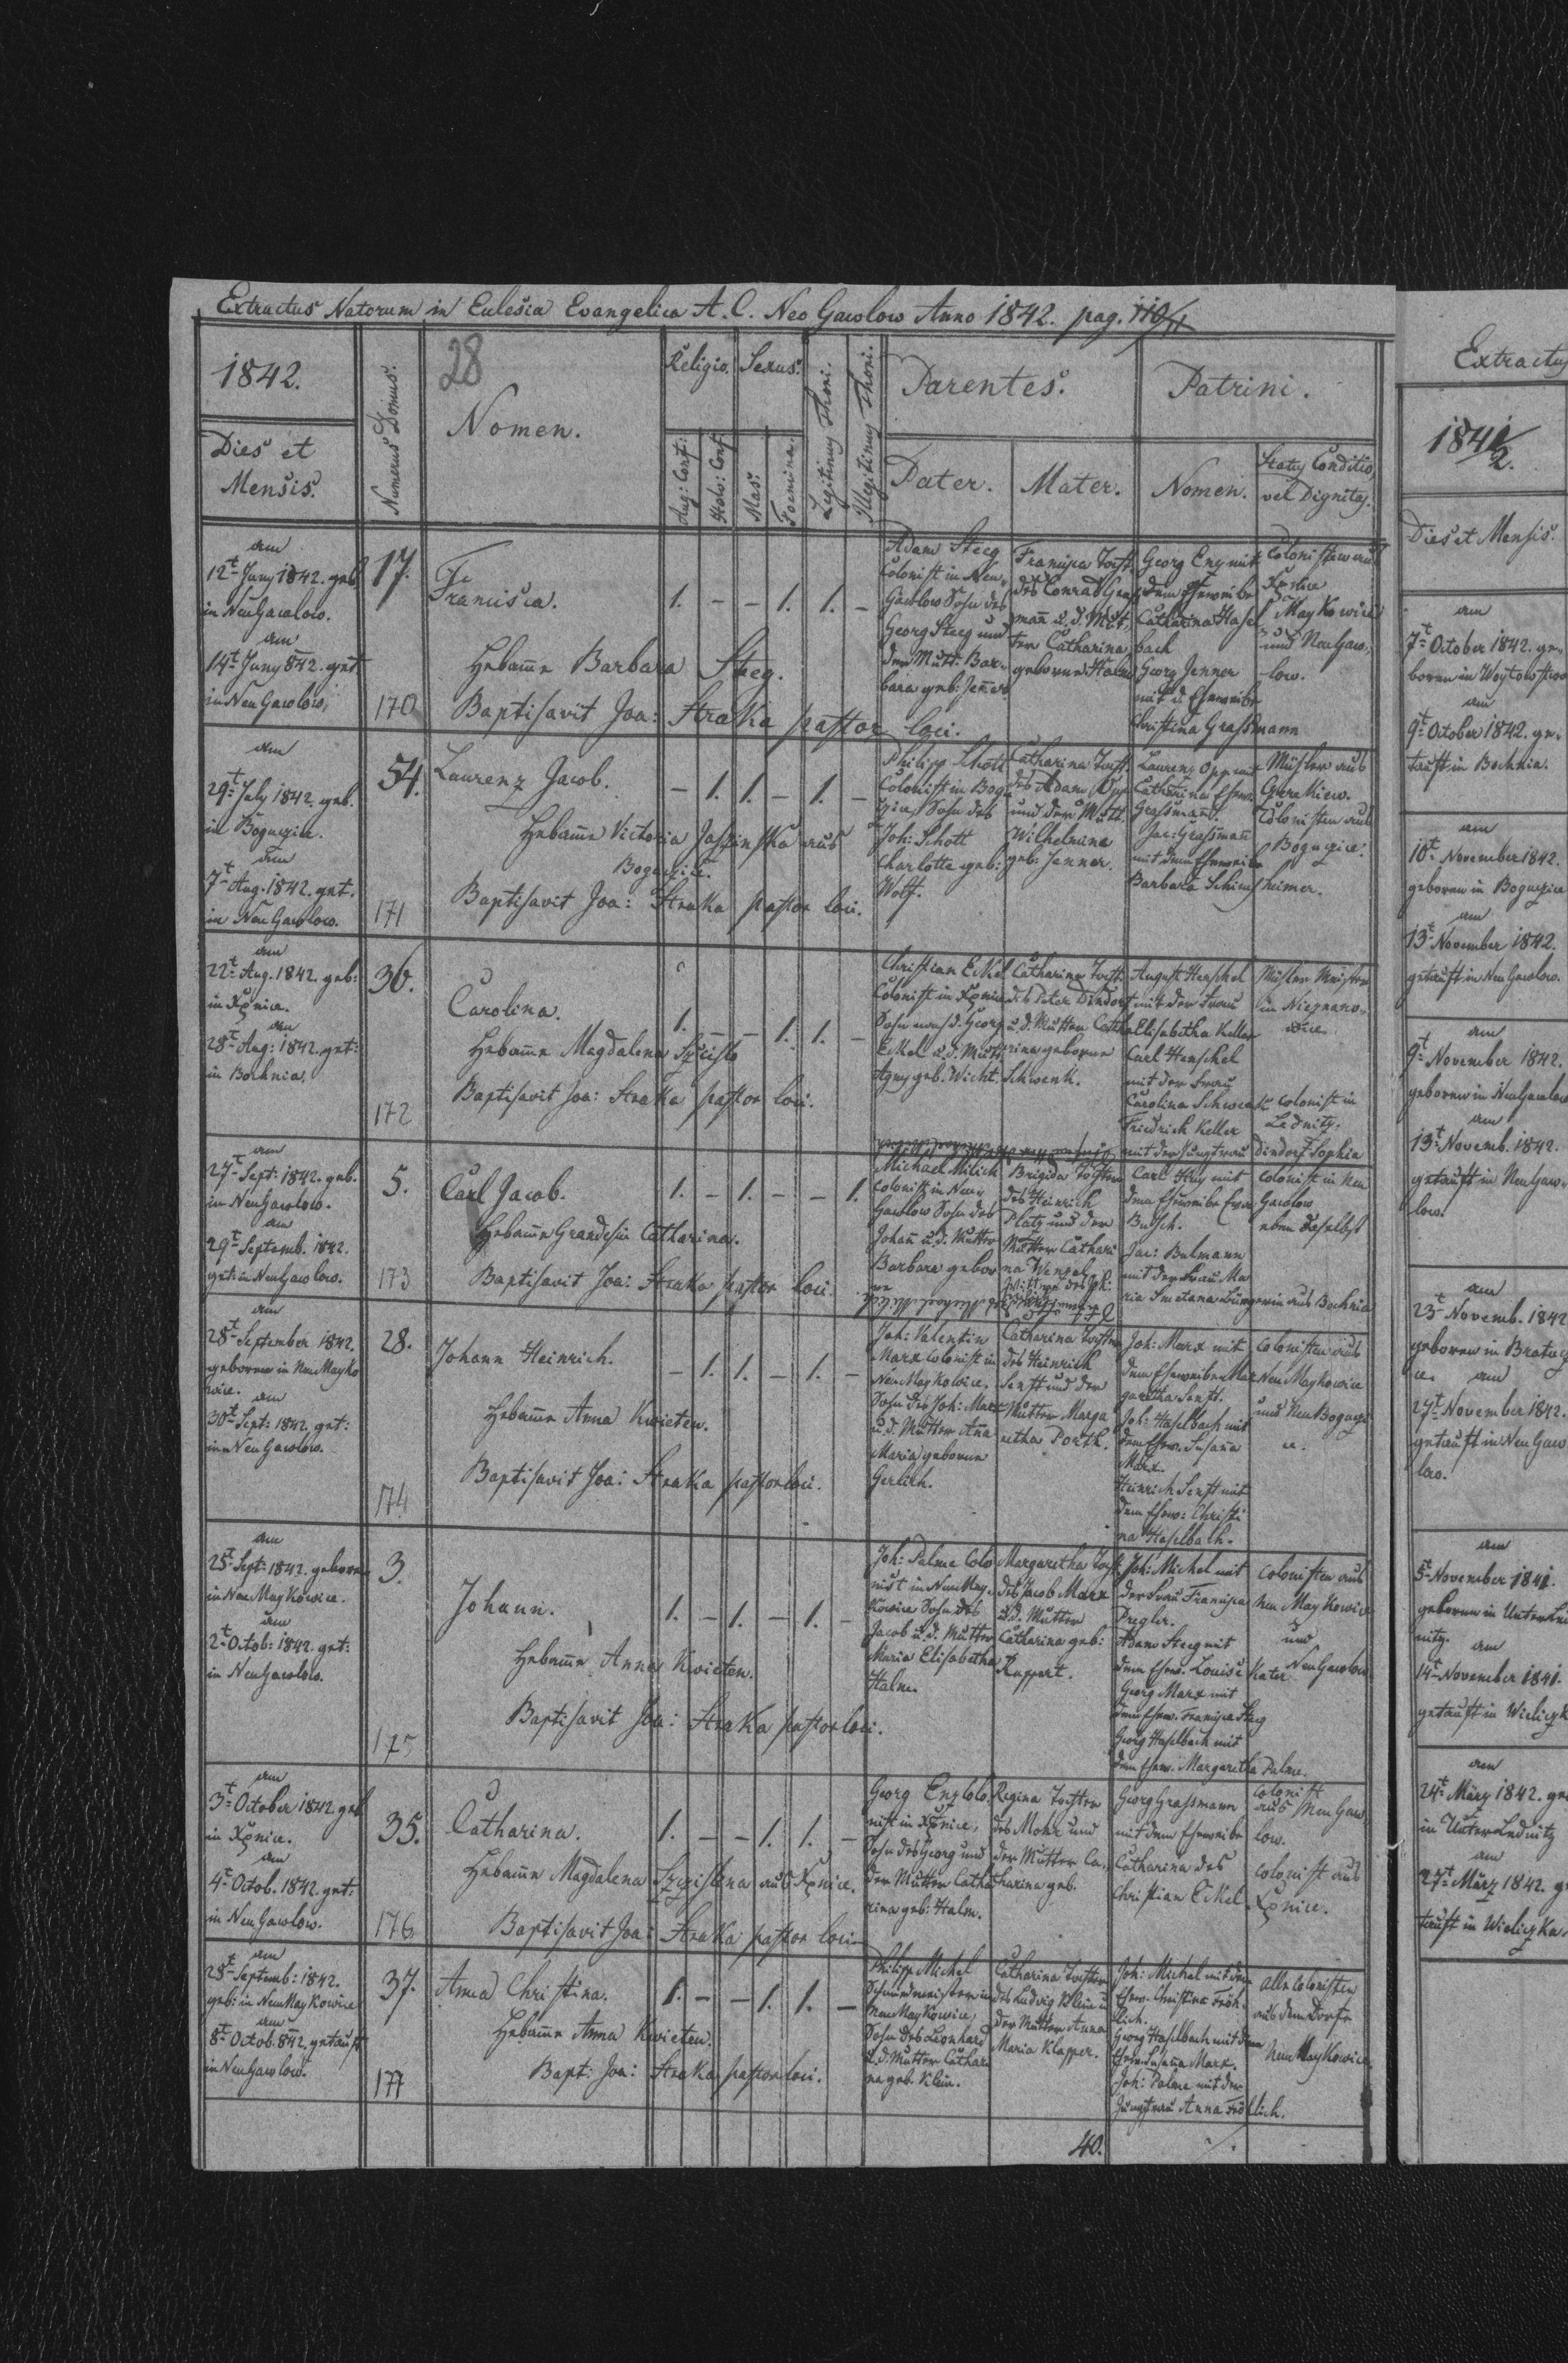 Extractus Natorum in Eclesia Evangelica A. C. Neo Gawlow Anno 1842. pag.
1842.
Dies et
Mensis.
Numerus Domus.
28
Nomen.
Religio.
Aug: Conf:
Helv: Conf
Sexus.
Mas:
Foemina.
Legitimus Thori.
Illegitimus Thori.
Parentes.
Pater.
Mater.
Patrini.
Nomen.
Status Conditio,
vel Dignitas.
am
12t Juny 1842. geb
in NeuGawlow.
am
14t Juny 842. get
in NeuGawlow,
17.
170
Francisca.
1. - - 1. 1. -
Hebame Barbara Steeg.
Baptisavit Joa: Straka pastor loci.
Adam Steeg
Colonist in Neu
Gawlow Sohn des
Georg Steeg und
der Mutt: Bar-
bara geb: Jenner
Francisca Tocht
des Conrad Gras
mann u. d. Mut
ter Catharina
geborene Halm
Georg Eng mit
dem Eheweibe
Catharina Hasel
bach
Georg Jenner
mit d. Eheweibe
Christina Grassmann
Colonisten aus
Xionice
Maykowice
und NeuGaw
low.
am
29t July 1842. geb.
in Bogucice.
den
7t Aug. 1842. get.
in NeuGawlow.
54.
171
Laurenz Jacob.
- 1. 1. - 1. -
Hebame Victoria Jaszinska aus
Bogucice.
Baptisavit Joa: Straka pastor loci.
Philipp Schott
Colonist in Bogu
cice, Sohn des
Joh: Schott
Charlotte geb:
Wolf.
Catharina Tocht.
des Adam Opp
und der Mutt.
Wilhelmina
geb. Jenner.
Laurenz Opp mit
Catharina Ehew.
Grassmann.
Jac: Grassmann
mit dem Eheweibe
Barbara Schinsheimer.
Müller aus
Colonisten aus
Bogucice.
am
22t Aug. 1842. geb:
in Xionice.
am
28t Aug: 1842. get:
in Bochnia.
36.
172
Carolina.
1. - - 1. 1. -
Hebame Magdalena
Baptisavit Joa: Straka pastor loci.
Christian Eckel
Colonist in Xionice
Sohn des Georg
Eckel u. d. Mutt.
Agnes geb. Wicht.
Catharina Tocht.
des Peter Dindorf
u. d. Mutter Catha
rina geborene
Schwenk.
August Henschel
mit der Frau
Elisabetha Keller
Carl Henschel
mit der Frau
Carolina Schwenk
Friedrich Keller
mit der Jungfrau Dindorf Sophia
Müller Meister
in Niegnano-
wice
Colonist in
Lednitz.
am
27t Sept: 1842. geb.
in NeuGawlow.
am
29t Septemb. 1842.
get: in NeuGawlow.
5.
173
Carl Jacob.
1. - 1. - - 1.
Hebame Grandesin Catharina.
Baptisavit Joa: Straka pastor loci.
Michael Milich
Colonist in Neu
Gawlow Sohn des
Johann u. d. Mutter
Barbara gebor
Brigida Tochter
des Heinrich
Platz und der
Mutter Cathari
na Wenzel
Carl Hay mit
dem Eheweibe Eva
Butsch.
Jac: Bulmann
mit der Frau Ma
ria Smetana Bürgerin aus Bochnia
Colonist in Neu
Gawlow
eben daselbst
am
28t September 1842.
geboren in NeuMayko
wice.
am
30t Sept: 1842. get:
in NeuGawlow.
28.
174
Johann Heinrich.
- 1. 1. - 1. -
Hebame Anna Kwieten.
Baptisavit Joa: Straka pastor loci.
Joh: Valentin
Marx Colonist in
NeuMaykowice.
Sohn des Joh: Marx
u. d. Mutter Anna
Maria geborene
Gerlich.
Catharina Tochter
des Heinrich
Senft und der
Mutter Marga
retha Porth.
Joh: Marx mit
dem Eheweibe Mar
garetha Senft.
Joh: Haselbach mit
dem Ehew. Susana
Marx.
Heinrich Senft mit
dem Ehew: Christi
na Haselbach.
Colonisten aus
NeuMaykowice
und NeuBoguci
ce.
am
25t Sept: 1842. geboren
in NeuMaykowice.
am
2t Octob: 1842. get:
in NeuGawlow.
3.
175
Johann.
1. - 1. - 1. -
Hebame Anna Kwieten.
Baptisavit Joa: Straka pastor loci.
Joh: Palme Colo
nist in NeuMay
kowice Sohn des
Jacob u. d. Mutter
Maria Elisabetha
Halm.
Margaretha Tocht
des Jacob Marx
u. d. Mutter
Catharina geb:
Ruppert.
Joh: Michel mit
der Frau Francisca
Pregler.
Adam Steeg mit
dem Ehew. Louise Kater
Georg Marx mit
dem Ehew. Francisca Steeg
Georg Haselbach mit
dem Ehew. Margaretha Palme.
Colonisten aus
NeuMaykowice
und
NeuGawlow
am
3t October 1842. geb
in Xionice.
am
4t Octob. 1842. get:
in NeuGawlow.
35.
176
Catharina.
1. - - 1. 1. -
Hebame Magdalena aus Xionice.
Baptisavit Joa: Straka pastor loci
Georg Eng Colo
nist in Xionice,
Sohn des Georg und
der Mutter Catha
rina geb: Halm.
Regina Tochter
des Mohr und
der Mutter Ca-
tharina geb.
Georg Grassmann
mit dem Eheweibe
Catharina des
Christian Eckel
Colonist
aus NeuGaw
low.
Colonist aus
Xionice.
am
28t Septemb: 1842.
geb: in NeuMaykowice
am
8t Octob. 842. getauft
in NeuGawlow.
37.
177
Anna Christina.
1. - - 1. 1. -
Hebame Anna Kwieten.
Bapt: Joa: Straka pastor loci.
Philipp Michel
Schmidmeister in
NeuMaykowice,
Sohn des Leonhard
u. d. Mutter Cathari
na geb. Klein.
Catharina Tochter
des Ludvig Klein u
der Mutter Anna
Maria Klapper.
Joh: Michel mit dem
Ehew. Christina Fröh-
lich.
Georg Haselbach mit dem
Ehew. Susana Marx.
Joh: Palme mit der
Jungfrau Anna Fröhlich.
alle Colonisten
aus dem Dorfe
NeuMaykowice.
40.
Extractus
1841/2.
Dies et Mensis.
am
7t October 1842. ge-
boren in
am
9t October 1842. ge-
tauft in Bochnia.
am
10t November 1842.
geboren in Bogucice
am
13t November 1842.
getauft in NeuGawlow.
am
9t November 1842.
geboren in NeuGawlow
am
13t Novemb. 1842.
getauft in NeuGaw-
low.
am
23t Novemb. 1842
geboren in Bratuc
ce. am
27t November 1842.
getauft in NeuGaw
low.
am
5t November 1841.
geboren in UnterLed
nitz. am
14t November 1841.
getauft in Wieliczk
am
24t März 1842. ge
in UnterLednitz
am
27t März 1842. ge
tauft in Wieliczka.